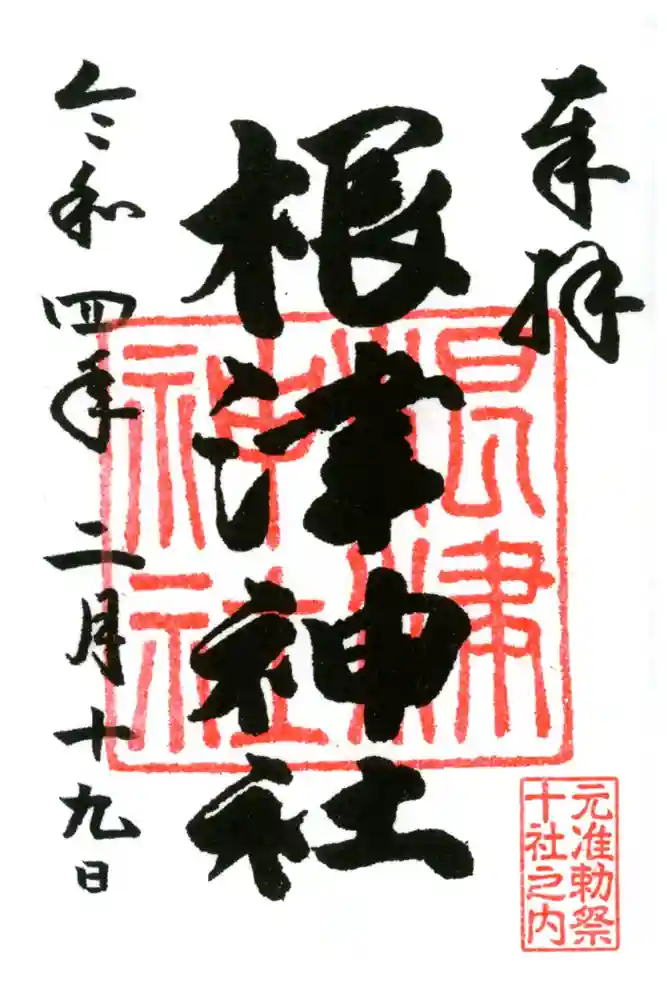 奉拝
根津神社
根津神社
令和四年二月十九日
元准勅祭
十社之内